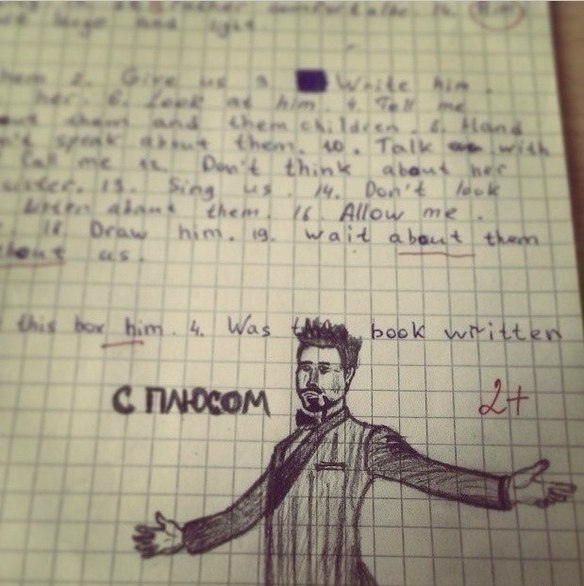 huge and light
them 2. Give us 3. Write him.
her. 6. Look at him. 7. Tell me
out them and them children. 8. Hand
n't speak about them. 10. Talk with
Call me 12. Don't think about her
sister. 13. Sing us. 14. Don't look
listen about them. 16. Allow me.
18. Draw him. 19. wait about them
about us.
this box him. 4. Was book written
С ПЛЮСОМ
2+